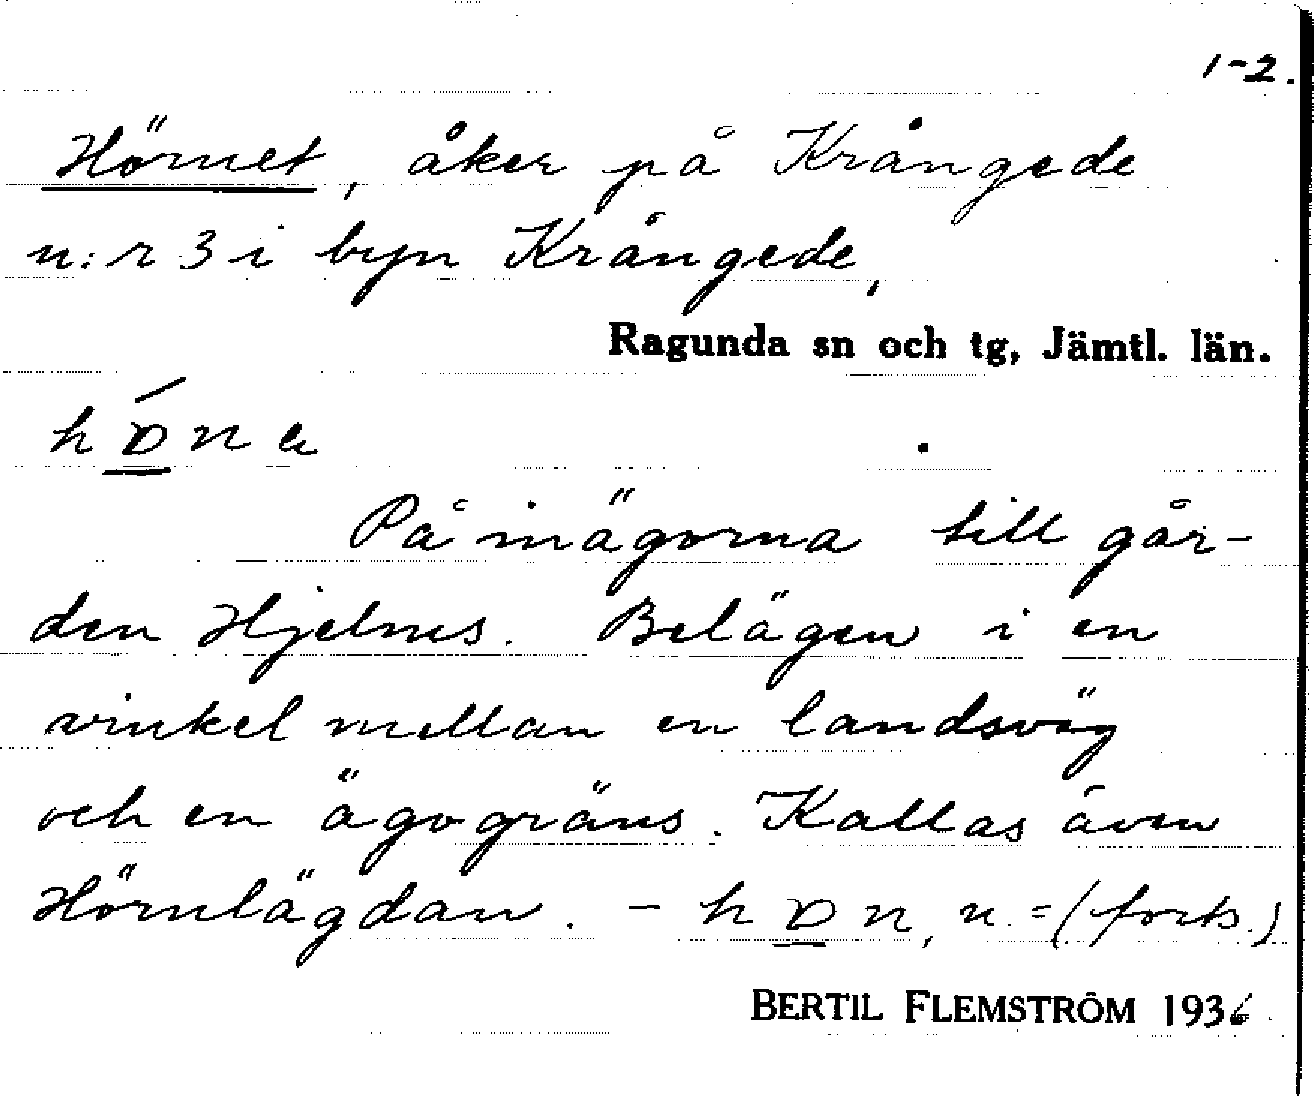 1-2.
Hörnet, åker på Krångede
n:r 3 i byn Krångede,
Ragunda sn och tg, Jämtl. län.
På inägorna till går-
den Hjelmes. Belägen i en
vinkel mellan en landsväg
och en ägogräns. Kallas även
Hörnlägdan. - n. = (forts.)
BERTIL FLEMSTRÖM 1936